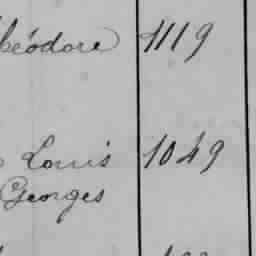 héodore 1119
Louis 1049
Georges